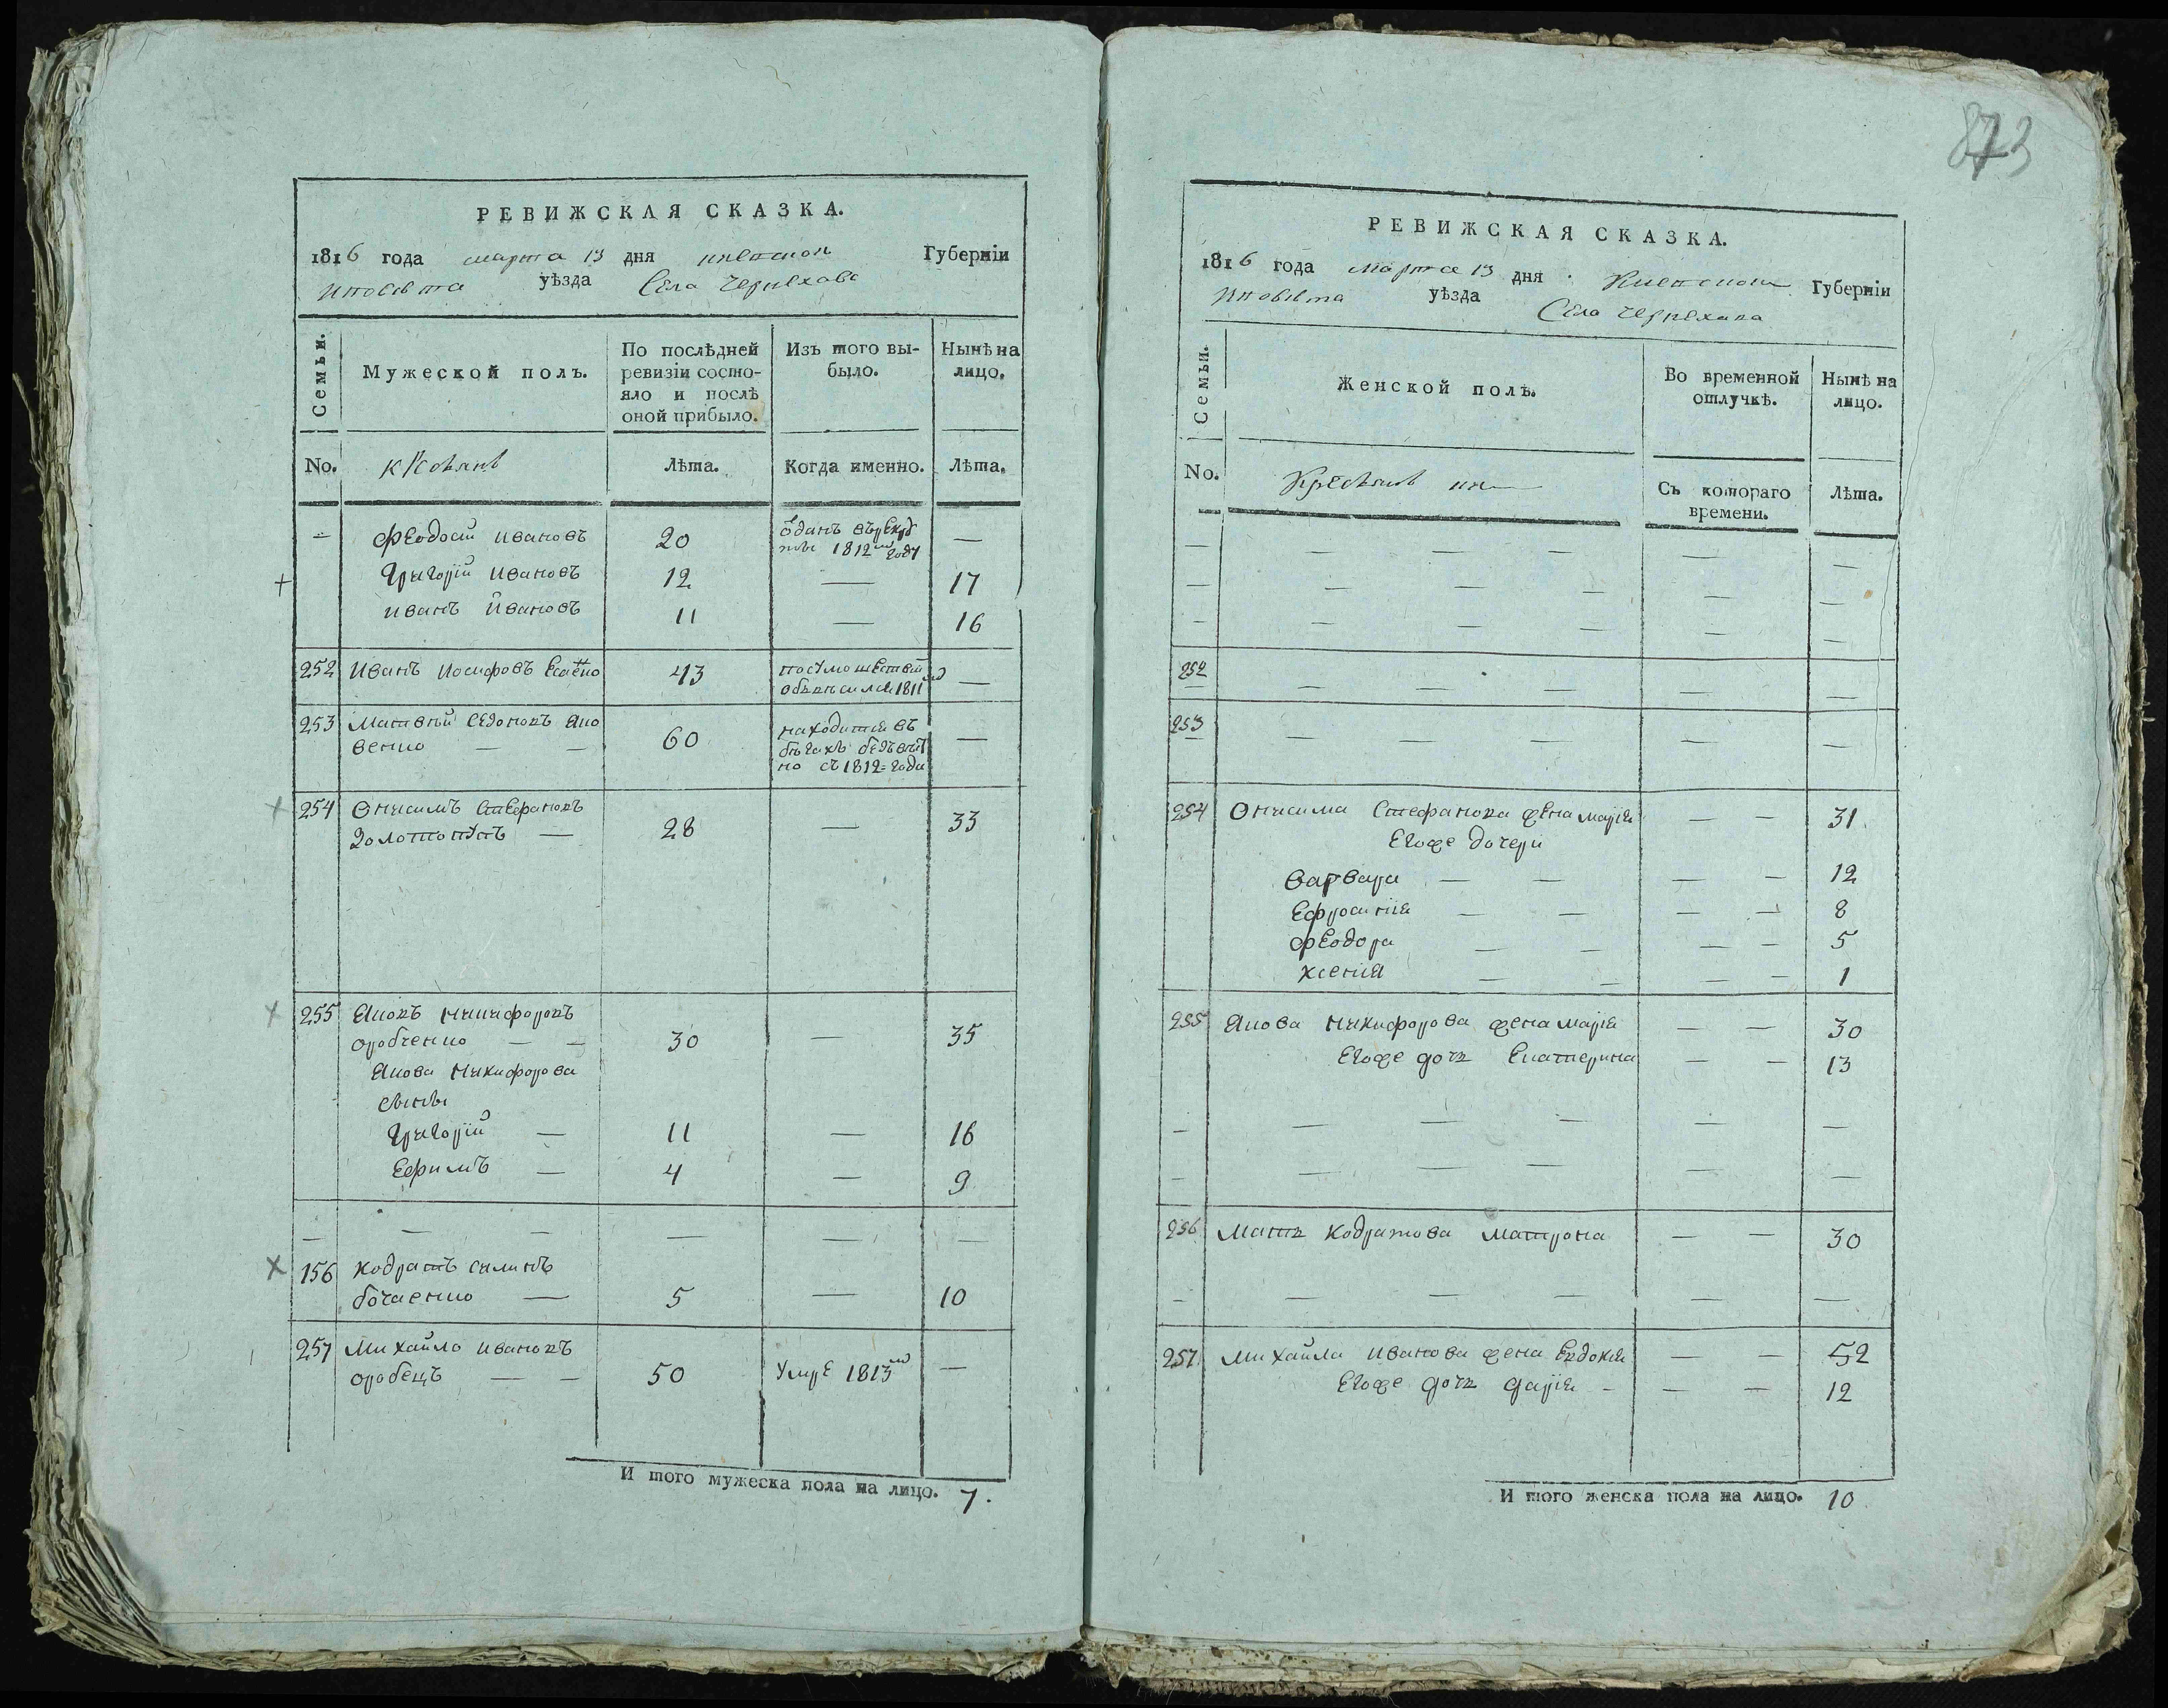 873
РЕВИЖСКАЯ СКАЗКА.
1816 года марта 13 дня киевской Губерніи
и повѣта уѣзда Села Черняхова
Семьи.
Мужеской полъ.
По послѣдней ревизіи состояло и послѣ оной прибыло.
Изъ того выбыло.
Нынѣ на лицо.
No.
Лѣта.
Когда именно.
Лѣта.
— Феодосій Ивановъ 20 ѿданъ въ рекруты 1812го году —
Григорій Ивановъ 12 — 17
Иванъ Ивановъ 11 — 16
252 Иванъ Иосифовъ 43 1811го —
253 Матвѣй Яковенко — — 60 находится въ бѣгахъ безъвѣстно съ 1812= года —
254 Онисимъ Стефановъ
Золотопупъ — 28 — 33
255 Яковъ Никифоровъ
оробченко — — 30 — 35
Якова Никифорова
сыны
Григорій — 11 — 16
Ефимъ — 4 — 9
— — — — — —
156 Кодратъ Силинъ
бочаенко — 5 — 10
257 Михайло Ивановъ
оробецъ — — 50 Умре 1813го —
И того мужеска пола на лицо. 7.
РЕВИЖСКАЯ СКАЗКА.
1816 года Марта 13 дня Киевской Губерніи
и повѣта уѣзда Села Черняхова
Семьи.
Женской полъ.
Во временной отлучкѣ.
Нынѣ на лицо.
No.
Съ котораго времени.
Лѣта.
— — — — — —
— — — — — —
— — — — — —
252 — — — — —
253 — — — — —
254 Онисима Стефанова жена Марія — — 31
Егоже дочери
Варвара — — — — 12
Ефросинія — — — — 8
Феодора — — — — 5
Ксенія — — — — 1
255 Якова Никифорова жена Марія — — 30
Егоже дочь Екатерина — — 13
— — — — — —
— — — — — —
256 Мать Кодратова Матрона — — 30
— — — — — —
257 Михайла Иванова жена Евдокія — — 52
Егоже дочь Дарія — — — 12
И того женска пола на лицо. 10